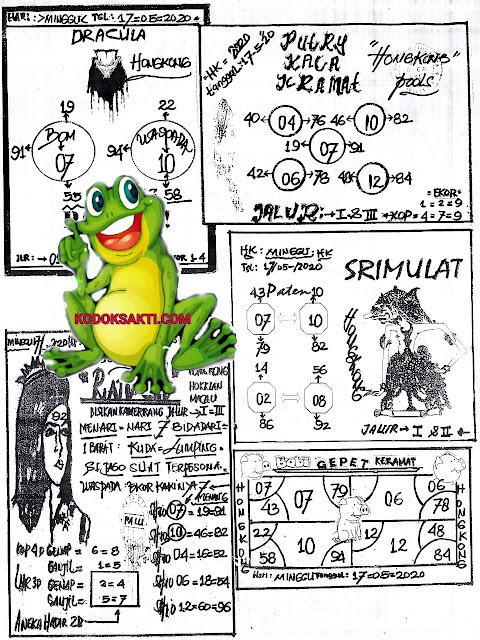 HARI :> MINGGU TGL: 17=05=2020
DRACULA
HONGKONG
19 22
91 BOM 07
94 WASPADA 10
55 58
HK = 2020
tanggal = 17=5=10
PUTRY
KACA
KRAMAT
"HONGKONG"
pools
40 04 76 46 10 82
19 07 91
42 06 78 48 12 84
=EKOR=
1=2=9
JALUR:→ I & III *KOP=4=7=9
KODOKSAKTI.COM
HK: MINGGU: HK
TGL: 17/05-/2020
SRIMULAT
43 Paten 10
07 10
79 82
14 56
02 08
86 92
HONGKONG
JALUR→ I & II
92
HOKKIAN
MACAU
BISIKAN KAMERRANG JALUR→I=III
MENARI=NARI 7 BIDADARI=
IBARAT: KUDA=JUMPING.
SI JAGO SUIT TERPESONA.
WASPADA: EKOR KANAN 7
07=19=91
10=46=82
04=16=52
06=18=54
12=60=96
KOP 4D GENAP = 6=8
GANJIL = 1=5
GENAP = 2=4
GANJIL = 5=7
ANGKA HADIR 2D
BABI GEPET KERAMAT
HONGKONG
HONGKONG
07 43 07 79 06 06 78
22 58 10 94 12 12 48 84
Hari: MINGGU Tanggal: 17=05=2020